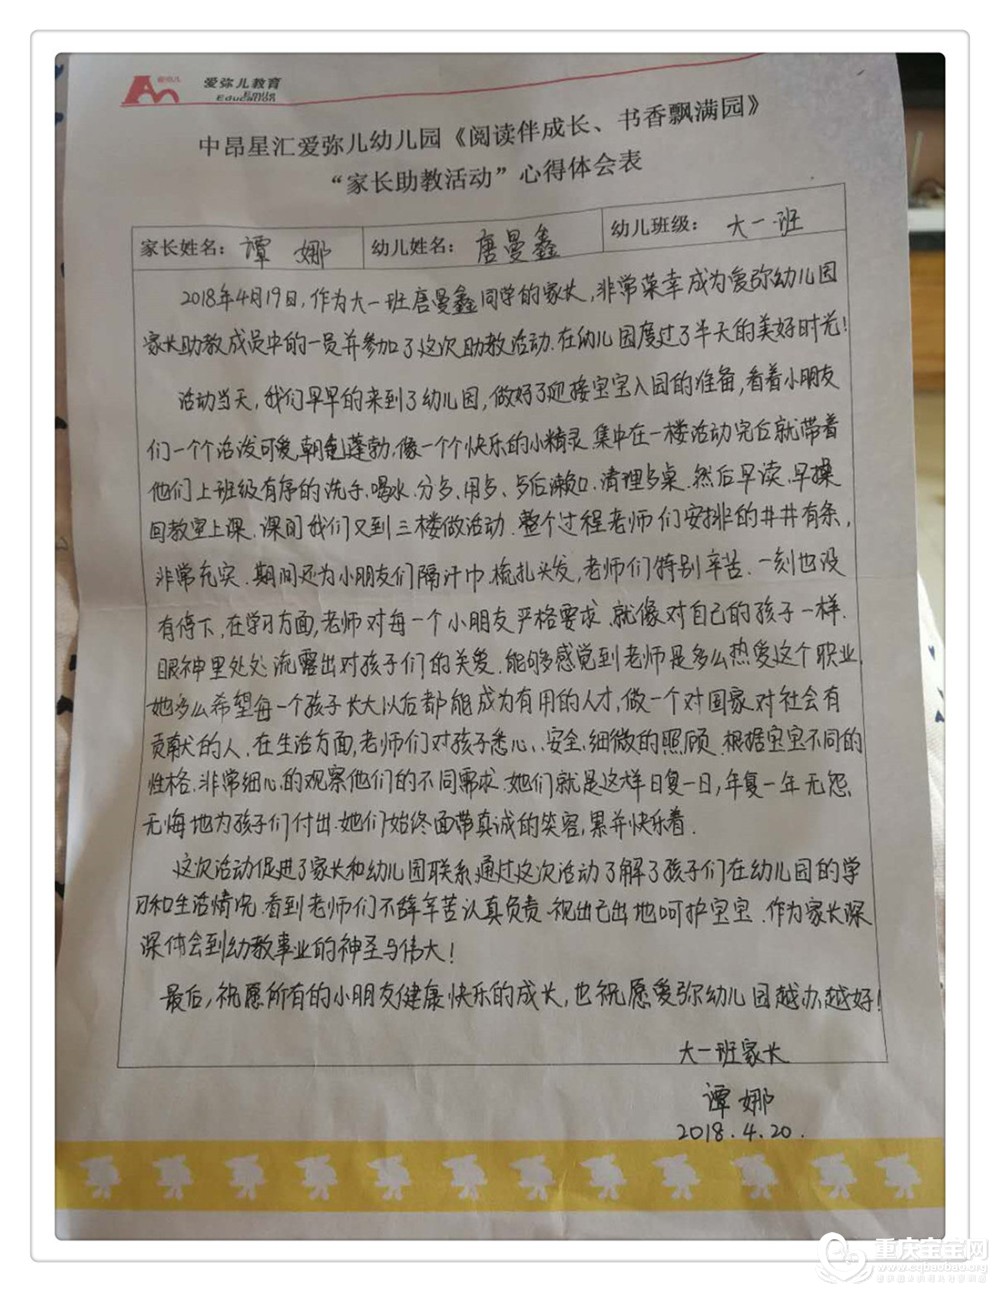 爱弥儿教育
Education
中昂星汇爱弥儿幼儿园《阅读伴成长、书香飘满园》
“家长助教活动”心得体会表
家长姓名：谭 娜 幼儿姓名：唐曼鑫 幼儿班级：大一班
2018年4月19日，作为大一班唐曼鑫同学的家长，非常荣幸成为爱弥幼儿园
家长助教成员中的一员并参加了这次助教活动.在幼儿园度过了半天的美好时光！
活动当天，我们早早的来到了幼儿园，做好了迎接宝宝入园的准备，看着小朋友
们一个个活泼可爱,朝气蓬勃,像一个个快乐的小精灵.集中在一楼活动完后就带着
他们上班级有序的洗手、喝水、分多、用多、多后漱口、清理多桌.然后早读、早操
回教室上课.课间我们又到三楼做活动.整个过程老师们安排的井井有条，
非常充实.期间还为小朋友们隔汗巾、梳扎头发,老师们特别辛苦.一刻也没
有停下,在学习方面,老师对每一个小朋友严格要求.就像对自己的孩子一样.
眼神里处处流露出对孩子们的关爱.能够感觉到老师是多么热爱这个职业,
她多么希望每一个孩子长大以后都能成为有用的人才,做一个对国家对社会有
贡献的人.在生活方面,老师们对孩子悉心、安全、细微的照顾.根据宝宝不同的
性格.非常细心的观察他们的不同需求.她们就是这样日复一日,年复一年无怨
无悔地为孩子们付出.她们始终面带真诚的笑容,累并快乐着.
这次活动促进了家长和幼儿园联系,通过这次活动了解了孩子们在幼儿园的学
习和生活情况.看到老师们不辞辛苦认真负责.视出已出地呵护宝宝.作为家长深
深体会到幼教事业的神圣与伟大！
最后，祝愿所有的小朋友健康快乐的成长，也祝愿爱弥幼儿园越办越好！
大一班家长
谭娜
2018.4.20.
重庆宝宝网
www.cqbaobao.org